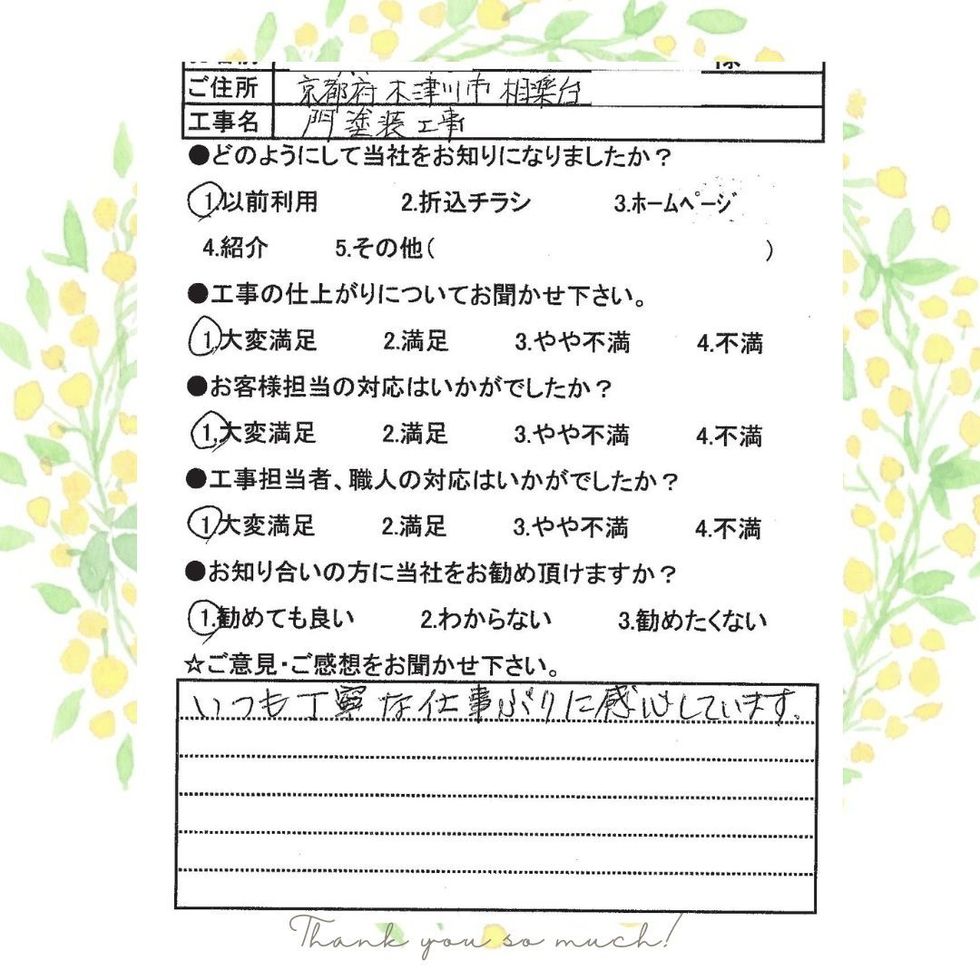 ご住所 京都府木津川市相楽台
工事名 門塗装工事
●どのようにして当社をお知りになりましたか？
1.以前利用 2.折込チラシ 3.ホームページ
4.紹介 5.その他( )
●工事の仕上がりについてお聞かせ下さい。
1.大変満足 2.満足 3.やや不満 4.不満
●お客様担当の対応はいかがでしたか？
1.大変満足 2.満足 3.やや不満 4.不満
●工事担当者、職人の対応はいかがでしたか？
1.大変満足 2.満足 3.やや不満 4.不満
●お知り合いの方に当社をお勧め頂けますか？
1.勧めても良い 2.わからない 3.勧めたくない
☆ご意見・ご感想をお聞かせ下さい。
いつも丁寧な仕事ぶりに感心しています。
Thank you so much!